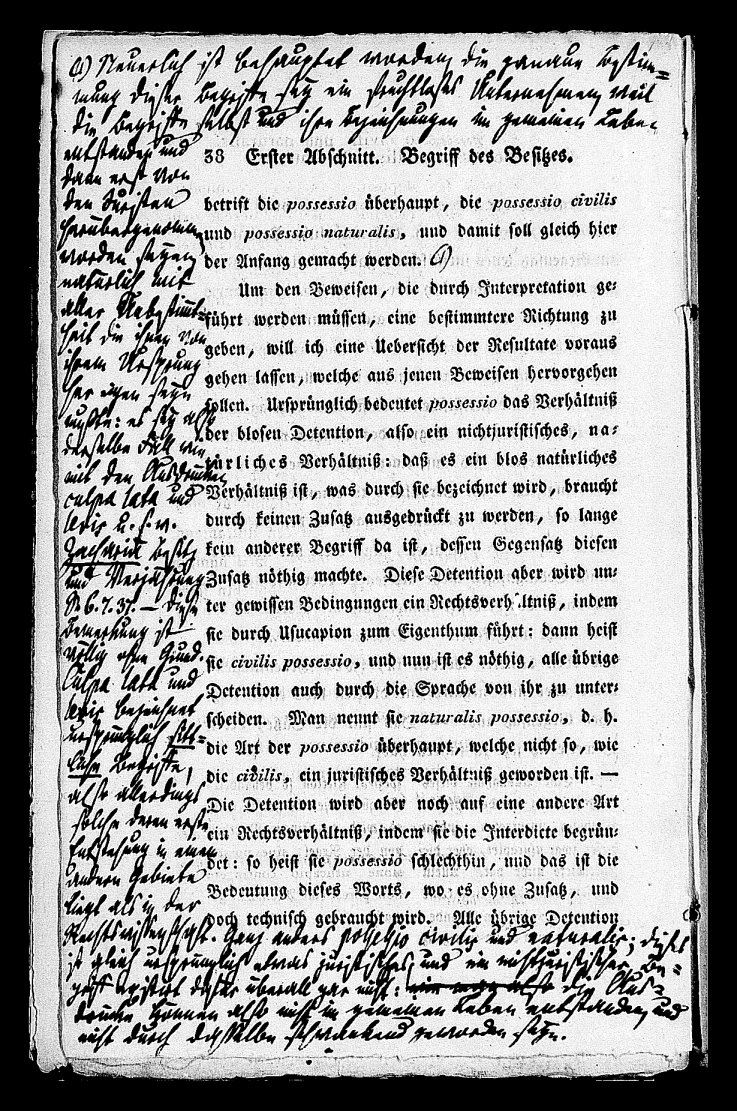 a) Neuerlich ist behauptet worden, die genaue Bestim=
mung dieser Begriffe sey ein fruchtloses Unternehmen, weil
die Begriffe selbst und ihre Bezeichnungen im gemeinen Leben
entstanden und
dann erst von
den Juristen
herübergenommen
worden seyen,
natürlich mit
aller Unbestimmt=
heit die ihnen von
ihrem Ursprung
her eigen seyn
mußte: es sey also
derselbe Fall wie
mit den Ausdrücken
culpa lata und
levis u. s. w.
Zachariä Besitz
und Verjährung
S. 6. 7. 37. — Diese
Bemerkung ist
völlig ohne Grund.
Culpa lata und
levis bezeichnet
ursprünglich sitt=
liche Begriffe,
also allerdings
solche deren erste
Entstehung in einem
andern Gebiete
liegt als in der
Rechtswissenschaft. Ganz anders possessio civilis und naturalis; dieses
ist gleich ursprünglich etwas juristisches, und ein nichtjuristischer Be=
griff existirt daher überall gar nicht: die Aus=
drücke können also nicht im gemeinen Leben entstanden, und
nicht durch dasselbe schwankend geworden seyn.
38 Erster Abschnitt. Begriff des Besitzes.
betrift die possessio überhaupt, die possessio civilis
und possessio naturalis, und damit soll gleich hier
der Anfang gemacht werden. a)
Um den Beweisen, die durch Interpretation ge=
führt werden müssen, eine bestimmtere Richtung zu
geben, will ich eine Uebersicht der Resultate voraus
gehen lassen, welche aus jenen Beweisen hervorgehen
sollen. Ursprünglich bedeutet possessio das Verhältniß
der blosen Detention, also ein nichtjuristisches, na=
türliches Verhältniß: daß es ein blos natürliches
Verhältniß ist, was durch sie bezeichnet wird, braucht
durch keinen Zusatz ausgedrückt zu werden, so lange
kein anderer Begriff da ist, dessen Gegensatz diesen
Zusatz nöthig machte. Diese Detention aber wird un=
ter gewissen Bedingungen ein Rechtsverhältniß, indem
sie durch Usucapion zum Eigenthum führt: dann heist
sie civilis possessio, und nun ist es nöthig, alle übrige
Detention auch durch die Sprache von ihr zu unter=
scheiden. Man nennt sie naturalis possessio, d. h.
die Art der possessio überhaupt, welche nicht so, wie
die civilis, ein juristisches Verhältniß geworden ist. —
Die Detention wird aber noch auf eine andere Art
ein Rechtsverhältniß, indem sie die Interdicte begrün=
det: so heist sie possessio schlechthin, und das ist die
Bedeutung dieses Worts, wo es ohne Zusatz, und
doch technisch gebraucht wird. Alle übrige Detention